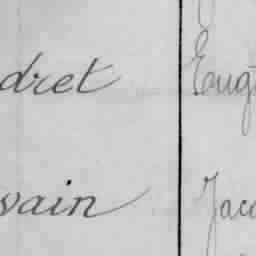 dret Eug
vain Jaco